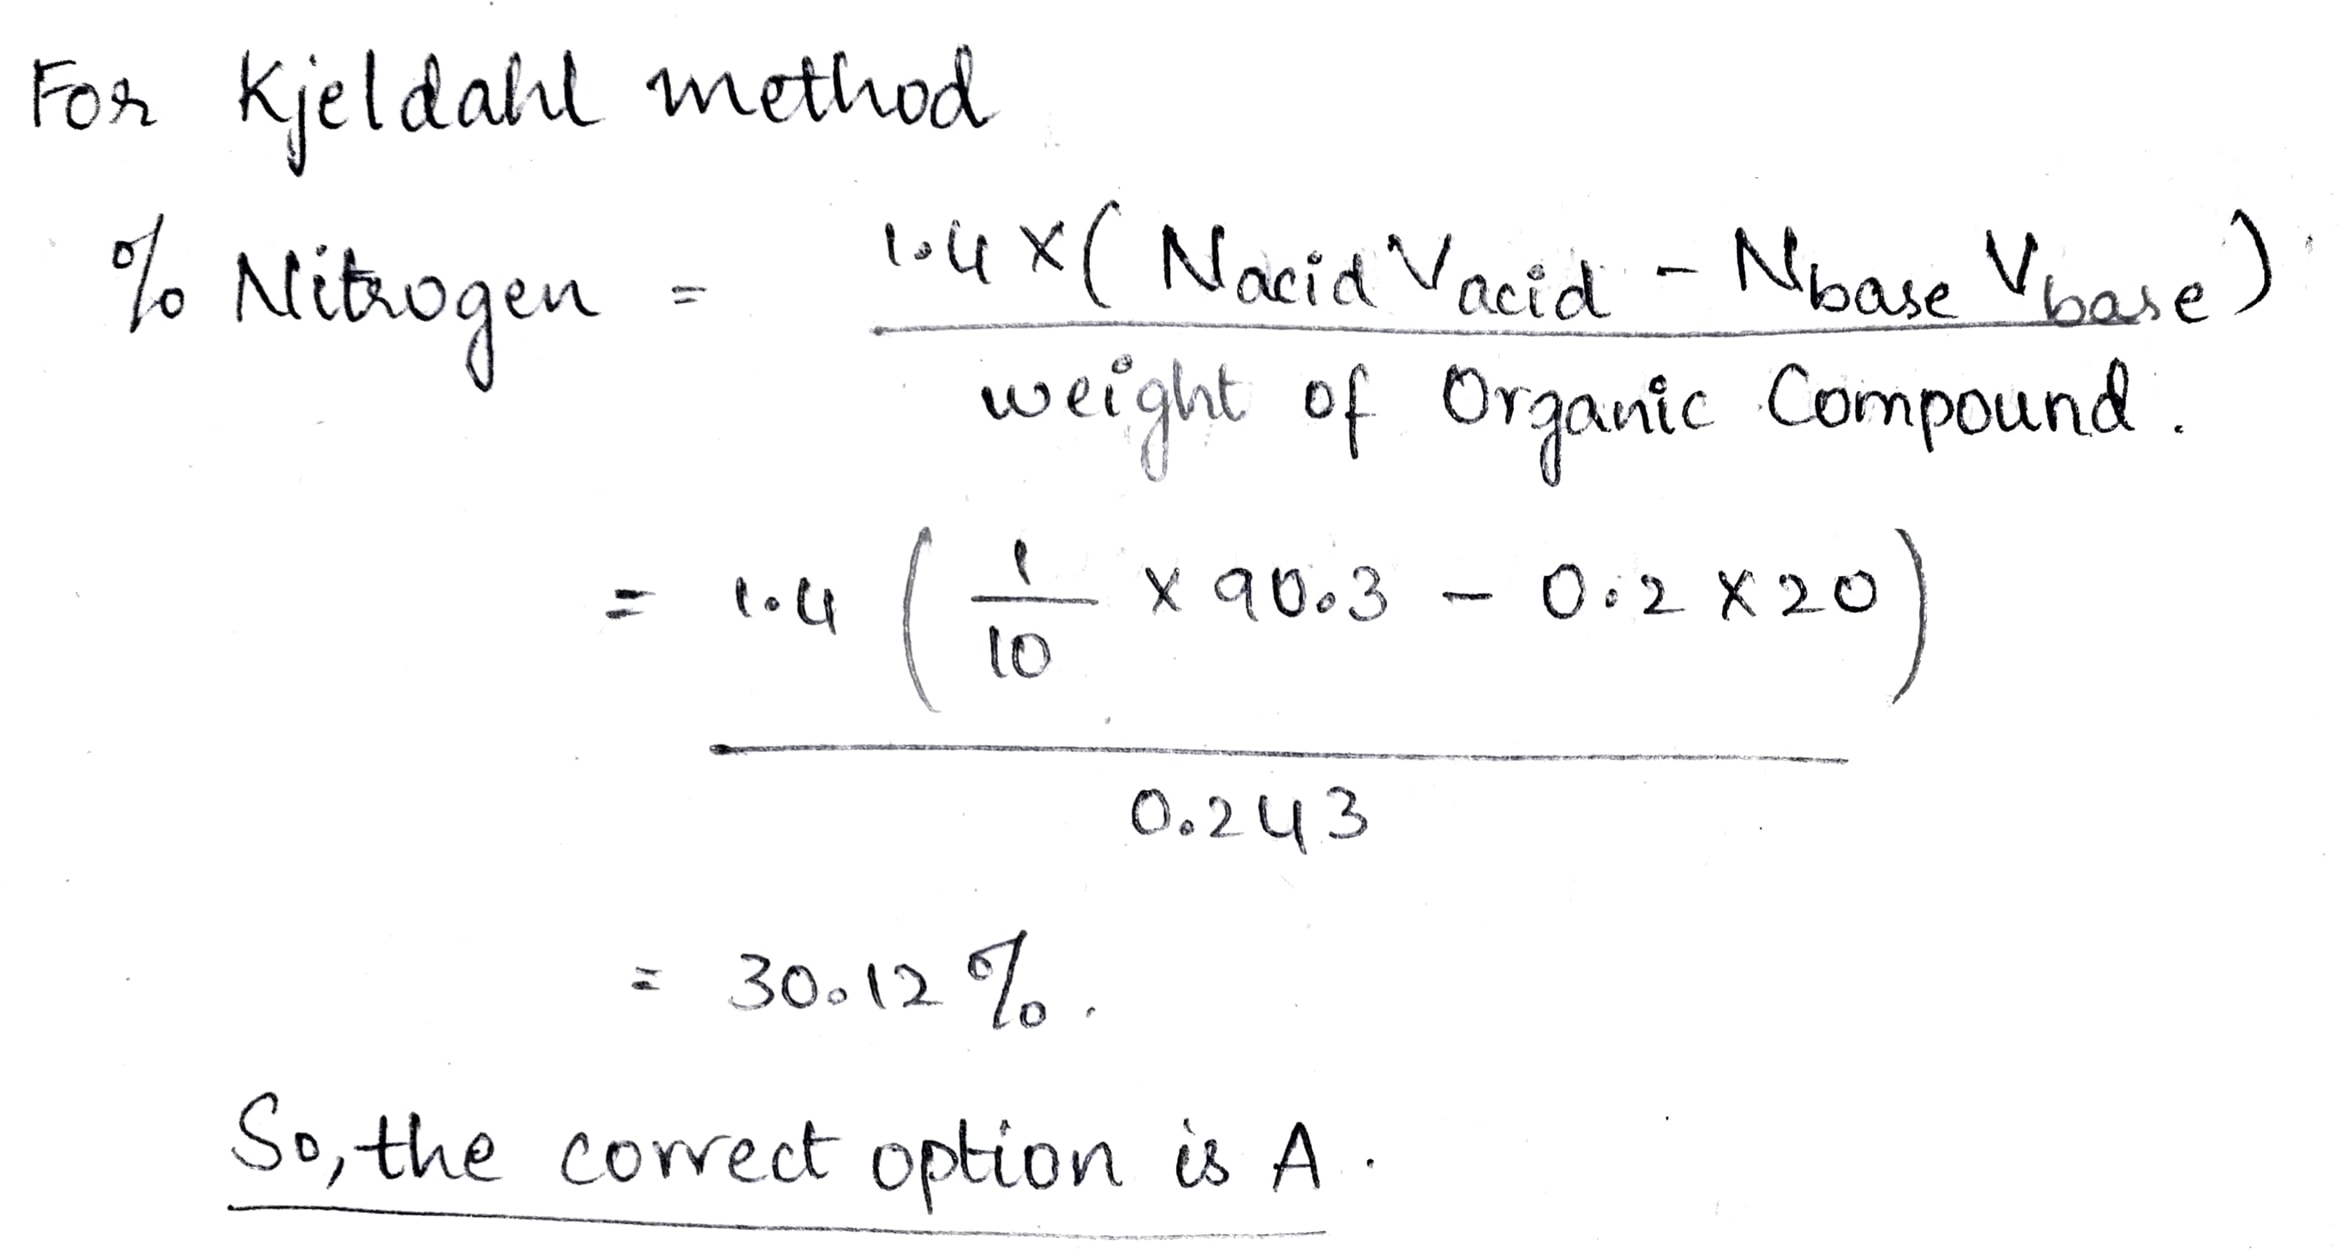 For Kjeldahl method
% Nitrogen = 1.4 x ( Nacid Vacid - Nbase Vbase )
weight of Organic Compound.
= 1.4 ( 1/10 x 90.3 - 0.2 x 20 )
0.243
= 30.12 %.
So, the correct option is A.